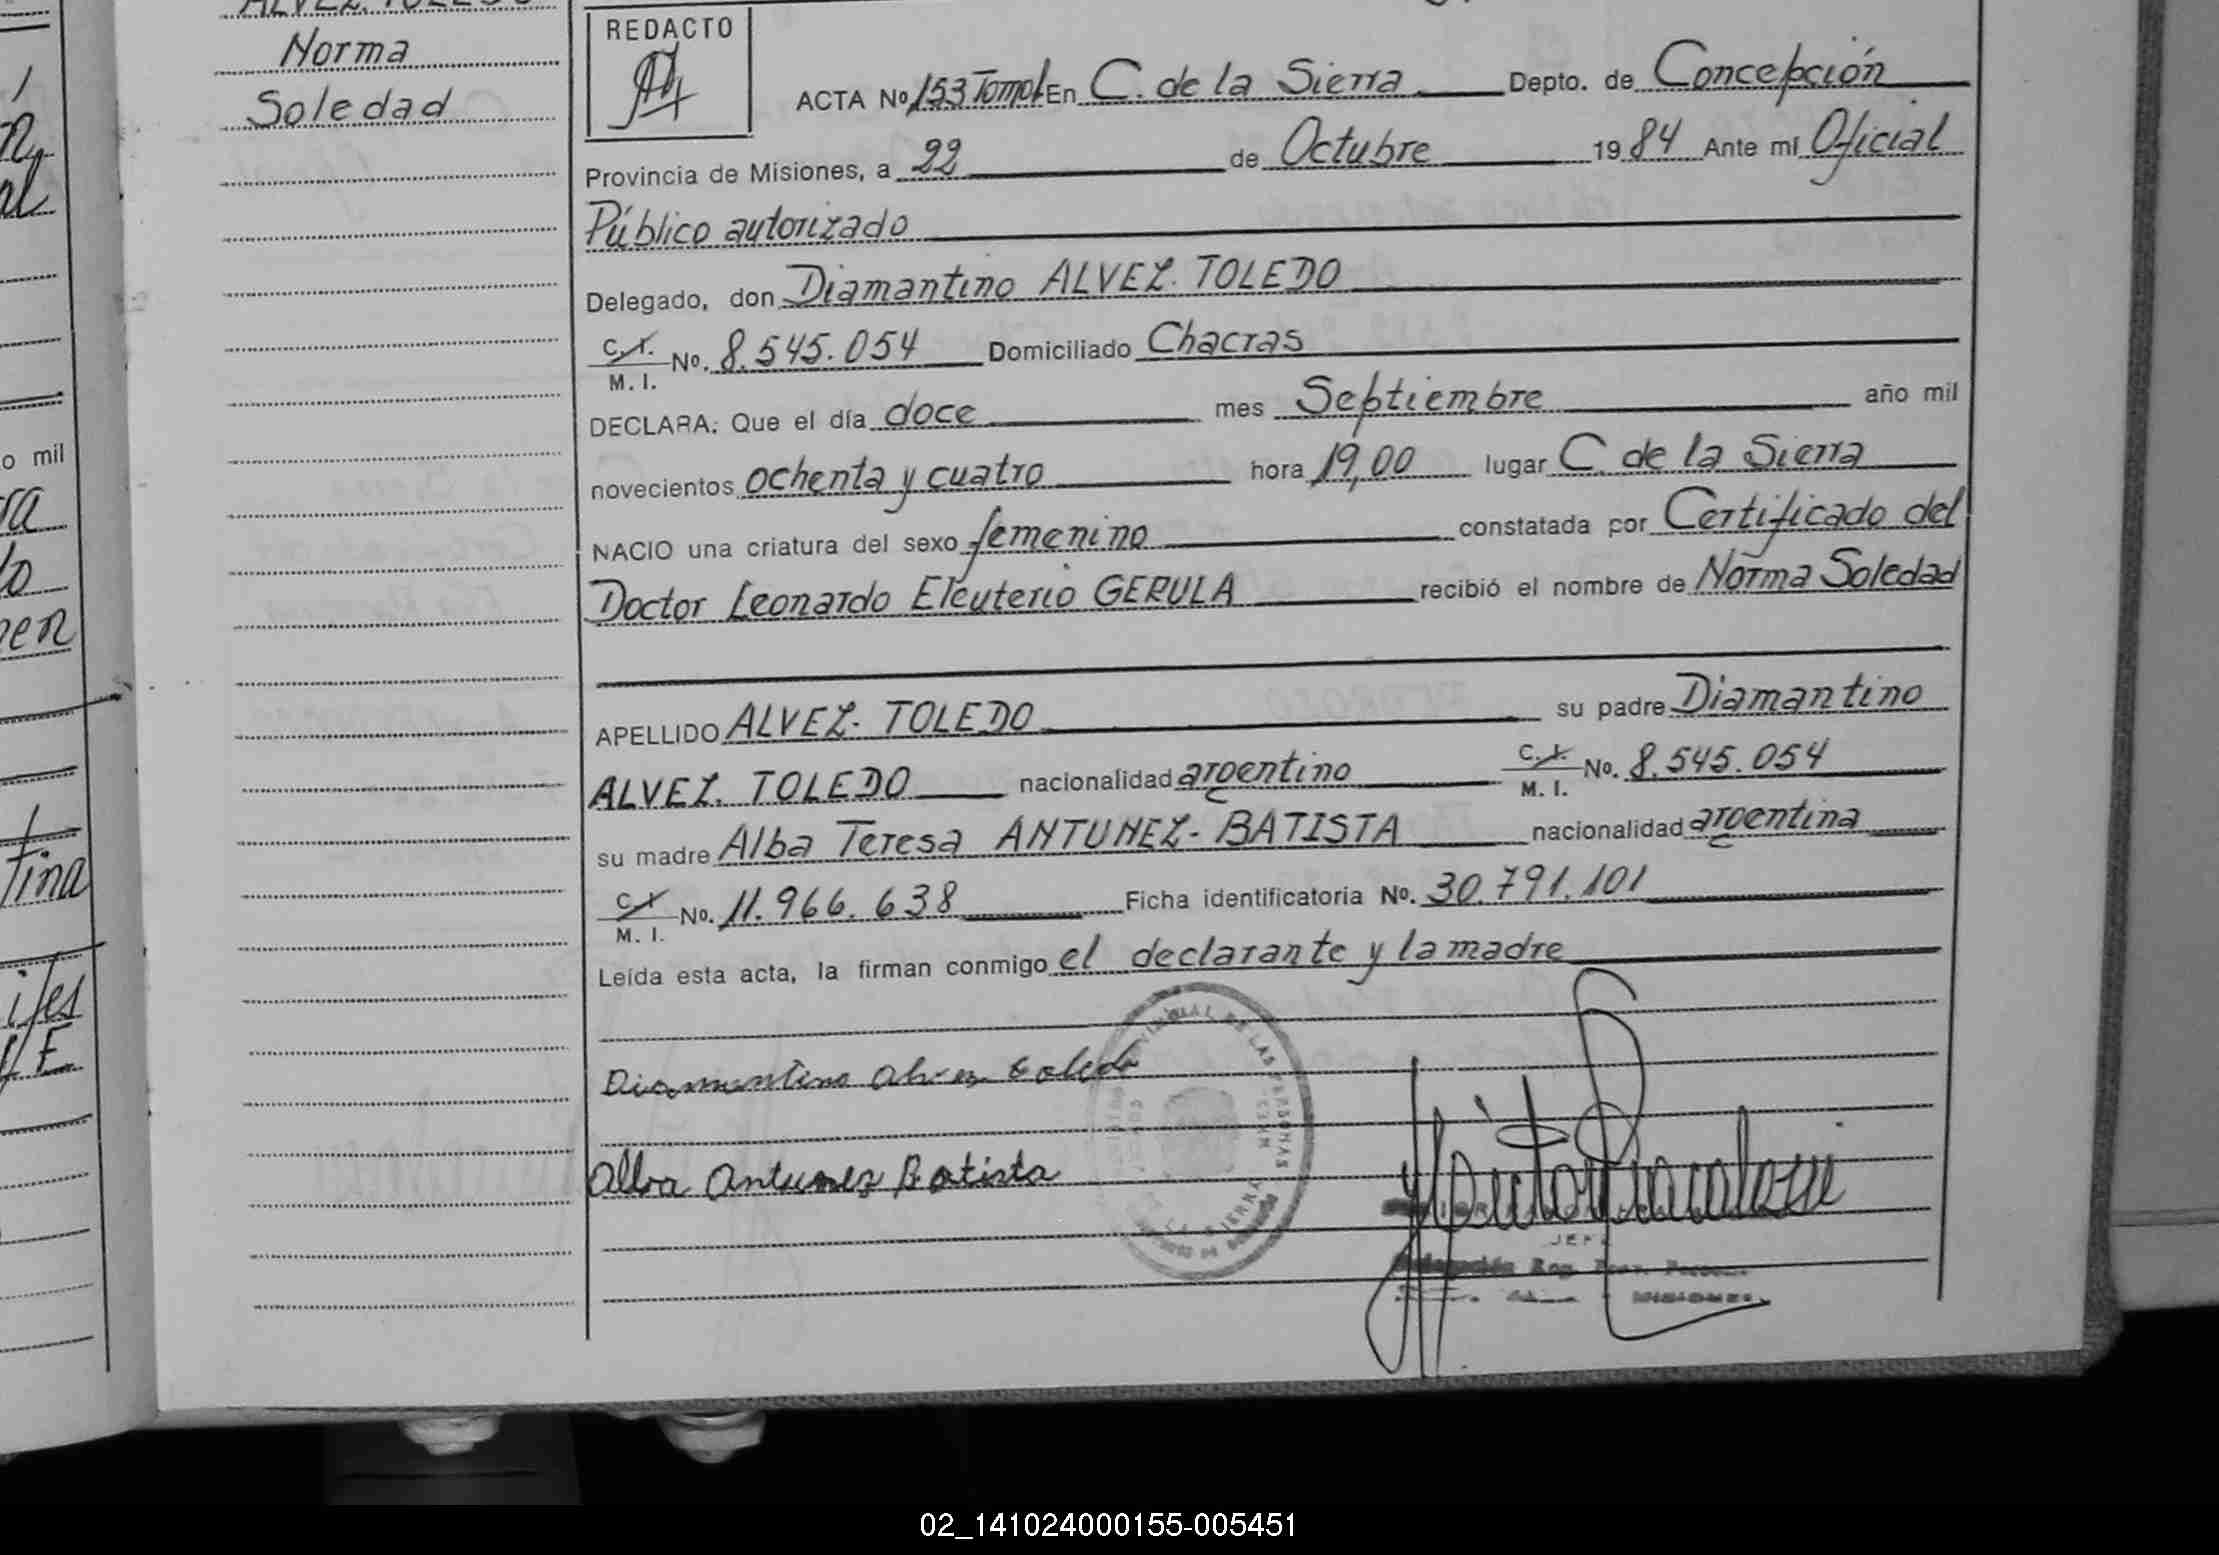 ALVEZ. TOLEDO
Norma
Soledad
REDACTO
ACTA No 153 Tomo I En C. de la Sierra Depto. de Concepción
Provincia de Misiones, a 22 de Octubre 1984 Ante mí Oficial
Público autorizado
Delegado, don Diamantino ALVEZ. TOLEDO
C. I.
M. I. No. 8.545.054 Domiciliado Chacras
DECLARA: Que el día doce mes Septiembre año mil
novecientos ochenta y cuatro hora 19,00 lugar C. de la Sierra
NACIO una criatura del sexo femenino constatada por Certificado del
Doctor Leonardo Eleuterio GERULA recibió el nombre de Norma Soledad
APELLIDO ALVEZ- TOLEDO su padre Diamantino
ALVEZ. TOLEDO nacionalidad argentino C. I. M. I. No. 8.545.054
su madre Alba Teresa ANTUNEZ- BATISTA nacionalidad argentina
C. I.
M. I. No. 11.966.638 Ficha identificatoria No. 30.791.101
Leída esta acta, la firman conmigo el declarante y la madre
Diamantino Alvez Toledo
Alba Antunez Batista
JEFE
MISIONES
o mil
tina
02_141024000155-005451